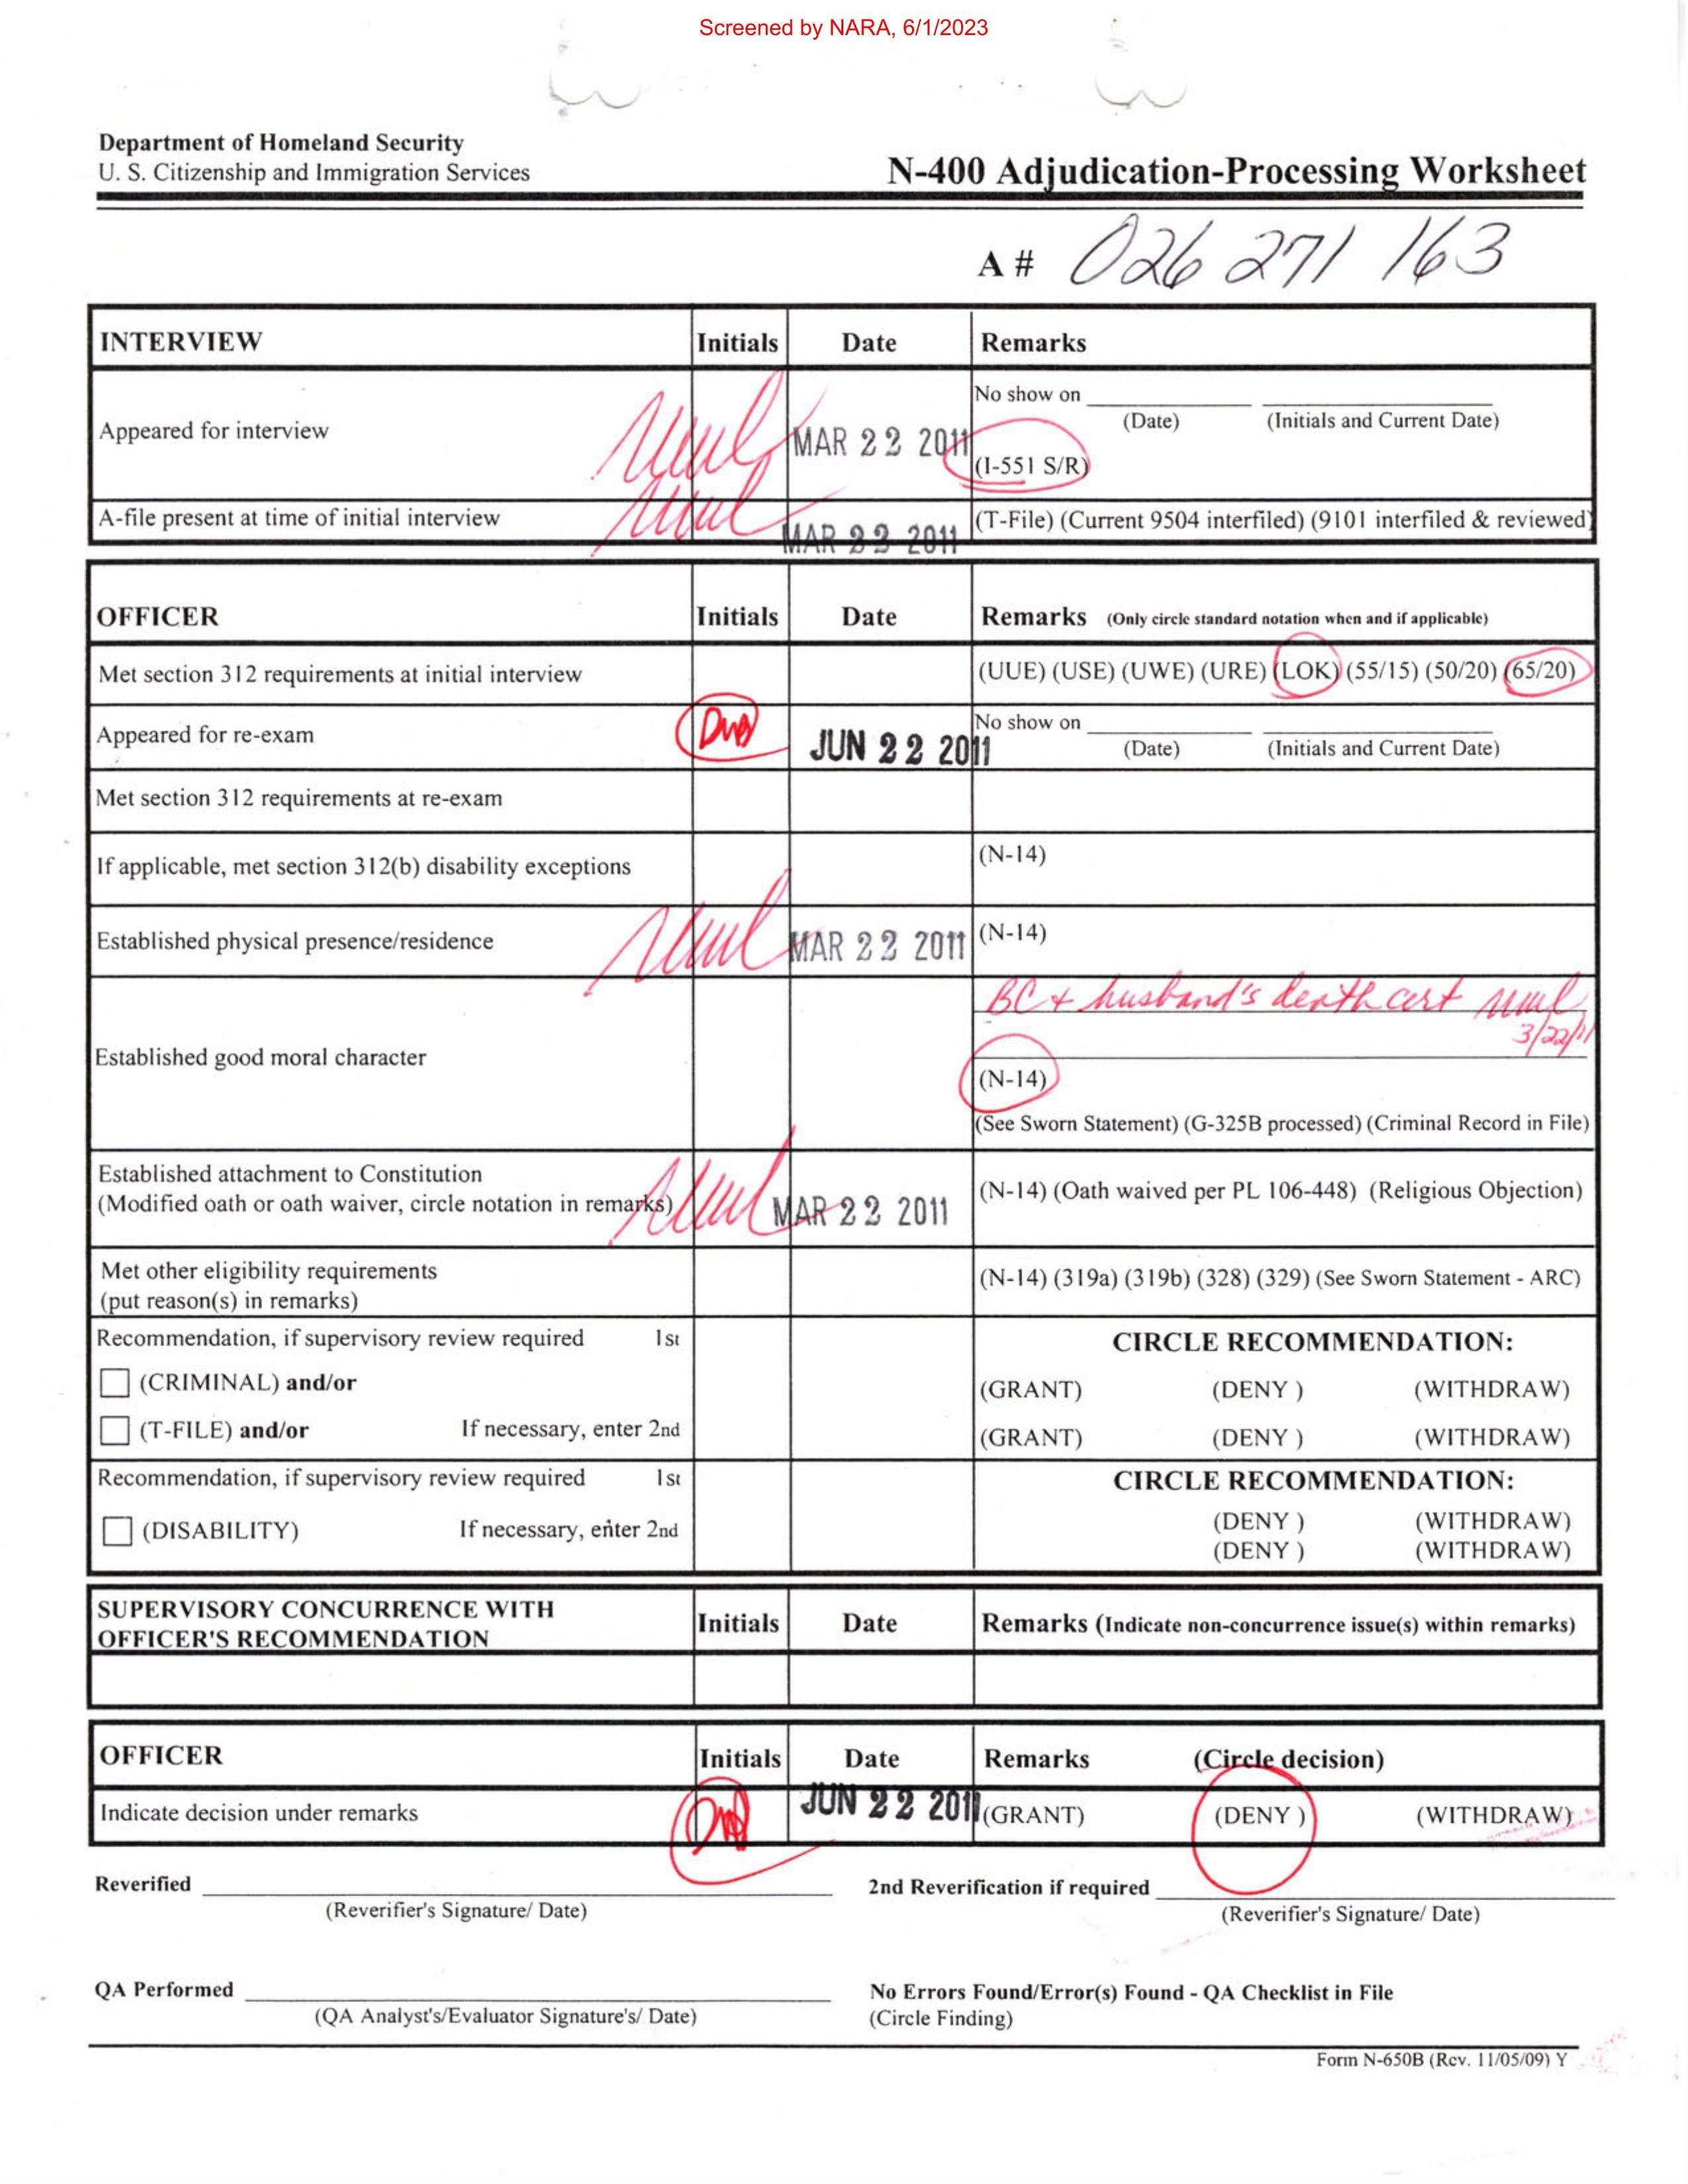 Screened by NARA, 6/1/2023
Department of Homeland Security
U. S. Citizenship and Immigration Services
N-400 Adjudication-Processing Worksheet
A # 026 271 163
INTERVIEW Initials Date Remarks
Appeared for interview MAR 22 2011 No show on
(Date) (Initials and Current Date)
(I-551 S/R)
A-file present at time of initial interview MAR 22 2011 (T-File) (Current 9504 interfiled) (9101 interfiled & reviewed)
OFFICER Initials Date Remarks (Only circle standard notation when and if applicable)
Met section 312 requirements at initial interview (UUE) (USE) (UWE) (URE) (LOK) (55/15) (50/20) (65/20)
Appeared for re-exam JUN 22 2011 No show on
(Date) (Initials and Current Date)
Met section 312 requirements at re-exam
If applicable, met section 312(b) disability exceptions (N-14)
Established physical presence/residence MAR 22 2011 (N-14)
BC + husband's death cert
3/22/11
Established good moral character
(N-14)
(See Sworn Statement) (G-325B processed) (Criminal Record in File)
Established attachment to Constitution
(Modified oath or oath waiver, circle notation in remarks) MAR 22 2011 (N-14) (Oath waived per PL 106-448) (Religious Objection)
Met other eligibility requirements
(put reason(s) in remarks) (N-14) (319a) (319b) (328) (329) (See Sworn Statement - ARC)
Recommendation, if supervisory review required 1st CIRCLE RECOMMENDATION:
(CRIMINAL) and/or (GRANT) (DENY ) (WITHDRAW)
(T-FILE) and/or If necessary, enter 2nd (GRANT) (DENY ) (WITHDRAW)
Recommendation, if supervisory review required 1st CIRCLE RECOMMENDATION:
(DENY ) (WITHDRAW)
(DISABILITY) If necessary, enter 2nd (DENY ) (WITHDRAW)
SUPERVISORY CONCURRENCE WITH
OFFICER'S RECOMMENDATION Initials Date Remarks (Indicate non-concurrence issue(s) within remarks)
OFFICER Initials Date Remarks (Circle decision)
Indicate decision under remarks JUN 22 2011 (GRANT) (DENY ) (WITHDRAW)
Reverified 2nd Reverification if required
(Reverifier's Signature/ Date) (Reverifier's Signature/ Date)
QA Performed No Errors Found/Error(s) Found - QA Checklist in File
(QA Analyst's/Evaluator Signature's/ Date) (Circle Finding)
Form N-650B (Rev. 11/05/09) Y